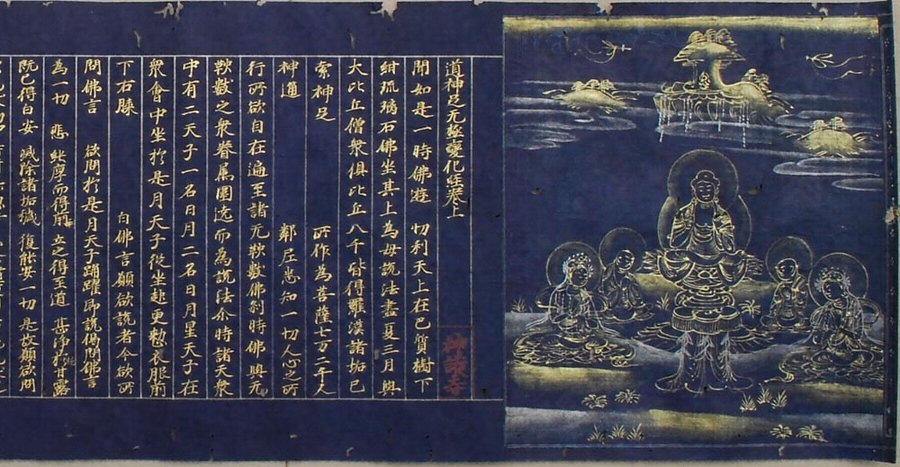 道神足无極變化經卷上
聞如是一時佛遊 忉利天上在巴質樹下
紺琉璃石佛坐其上為母說法盡夏三月與
大比丘僧衆俱比丘八千皆得羅漢諸垢已
索神足 所作為菩薩七万二千人
神通 鄰居悉知一切人心之所
行所欲自在遍至諸无鞅數佛刹時佛與无
鞅數之衆眷属圍遶而為說法尒時諸天衆
中有二天子一名日月二名日月星天子在
衆會中坐於是月天子從坐起更勑衣服前
下右膝 白佛言願欲說者今欲所
問佛言 欲問於是月天子踊躍即說偈問佛言
為一切 悲 厚而得前 立之得至道 甚淨於甘露
既已得自安 滅除諸垢穢 復能安一切 是故願欲問
神護寺